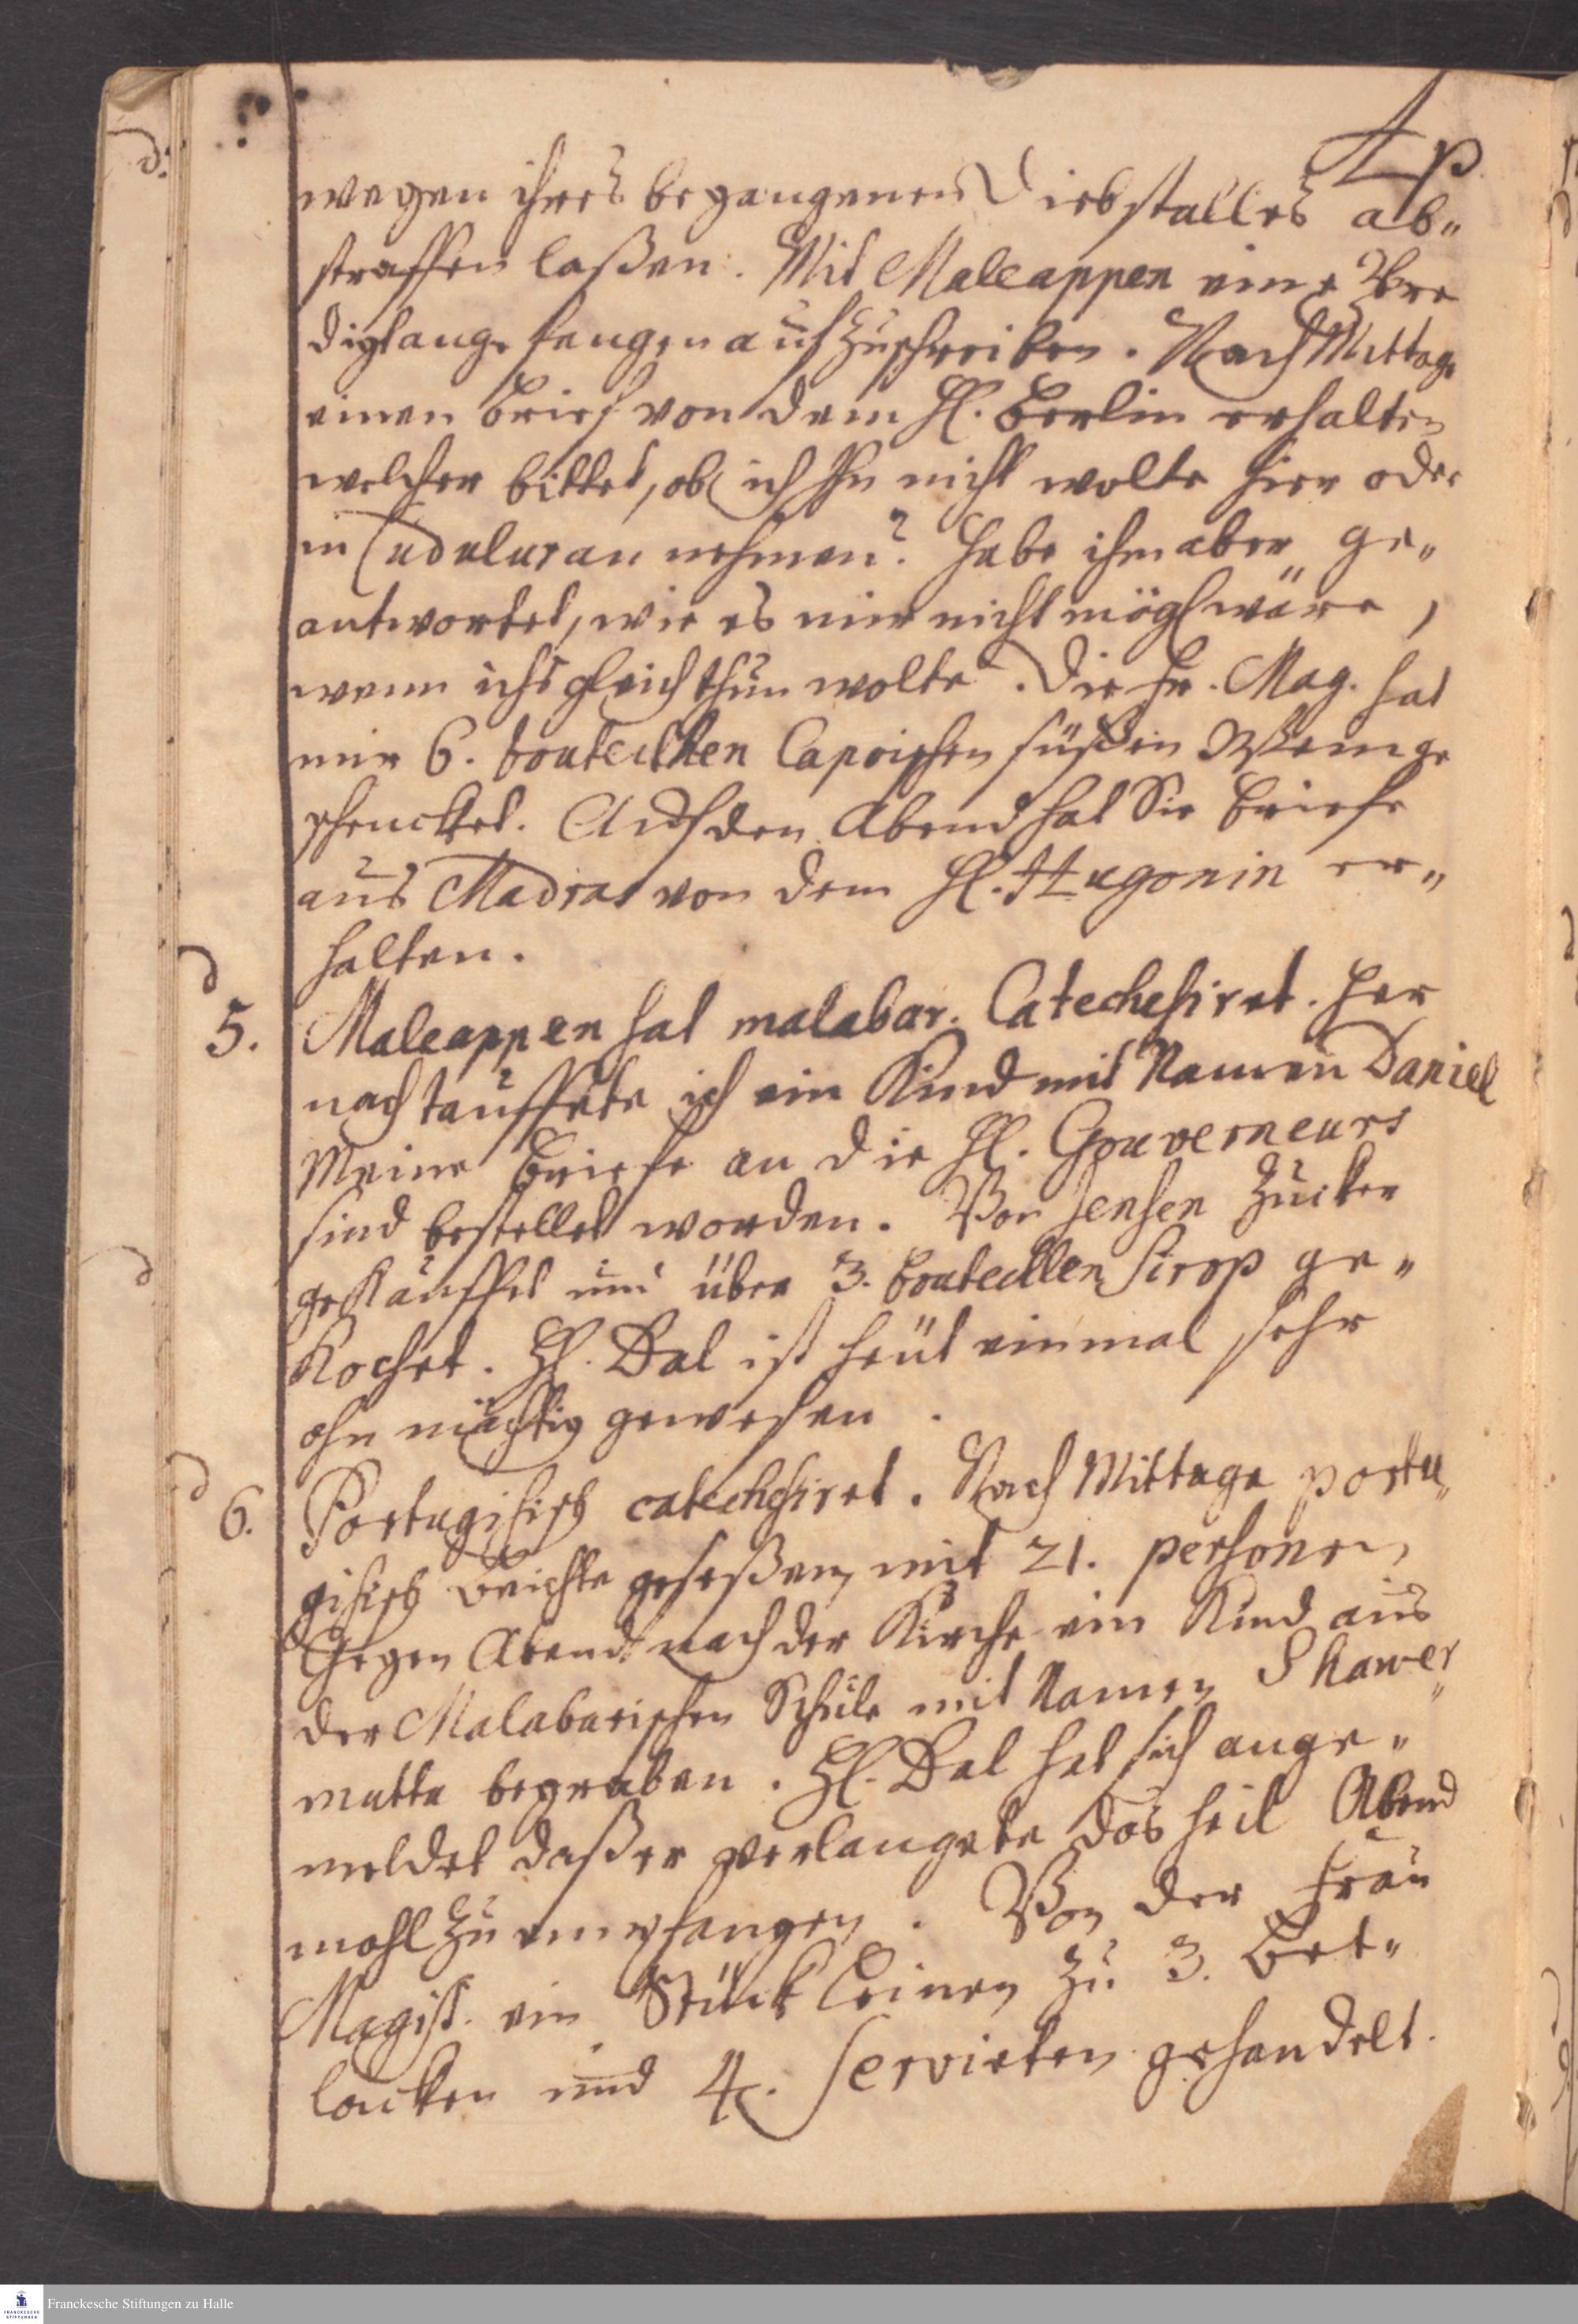 Ap
wegen ihres begangenen Diebstalles ab„
straffen laßen. Mit Maleappen eine Pre
digt angefangen aufzuschreiben. Nach Mittage
einen Brief von dem H. Berlin erhalten
welcher bittet, ob ich Ihn nicht wolte hier oder
in Cudulur an nehmen? habe ihm aber ge„
antwortet, wie es mir nicht mögl wäre,
wenn ichs gleich thun wolte. Die Fr. Mag. hat
mir 6. bouteillen Capoischen süßen Wein ge
schencket. Auch den Abend hat Sie briefe
aus Madras von dem H. Hugonin er„
halten.
5. Maleappen hat malabar. Catechesiret. her
nach tauffete ich ein Kind mit Namen Daniel
Meine briefe an die H. Gouverneurs
sind bestellet worden. Von Jensen Zucker
gekauffet und über 3. bouteillen Sirop ge„
kochet. H. Dal ist heut einmal sehr
ohn mächtig gewesen.
6. Portugisisch catechesiret. Nach Mittage portu„
gisisch beichte geseßen mit 21. personen
Gegen Abend nach der Kirche ein Kind aus
der Malabarischen Schule mit Namen Skawer„
mutta begraben. H. Dal hat sich ange„
meldet daß er verlangete das heil Abend
mahl zu empfangen. Von der Frau
Magist. ein Stück Leinen zu 3. bet„
lacken und 4. Servieten gehandelt.
Franckesche Stiftungen zu Halle